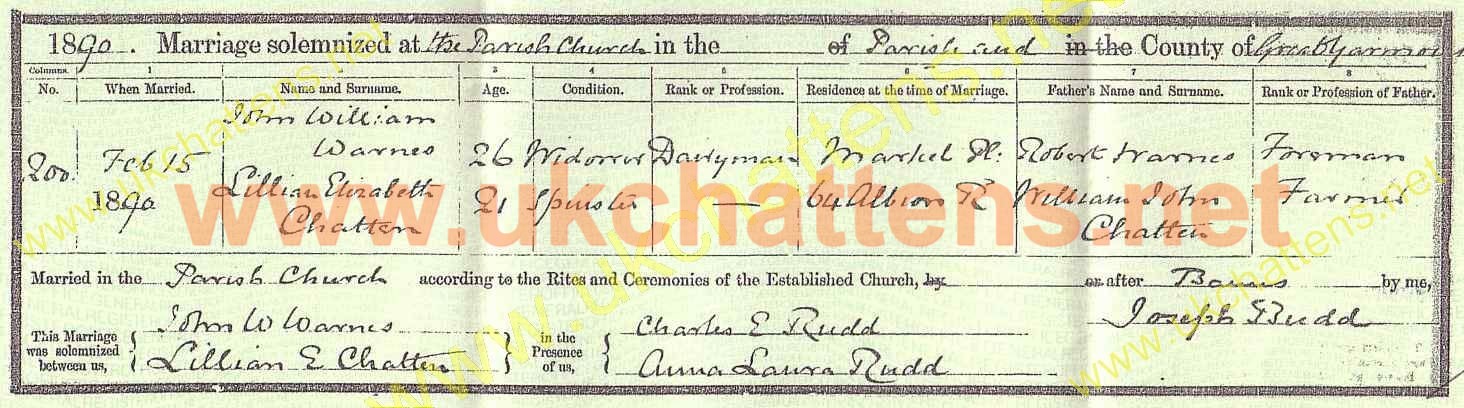 1890. Marriage solemnized at the Parish Church in the of Parish and in the County of Great Yarmouth
Columns. 1 2 3 4 5 6 7 8
No. When Married. Name and Surname. Age. Condition. Rank or Profession. Residence at the time of Marriage. Father's Name and Surname. Rank or Profession of Father.
200. Feb 15 John William Warnes 26 Widower Dairyman Market Pl: Robert Warnes Foreman
1890 Lillian Elizabeth Chatten 21 Spinster — 64 Albion R William John Chatten Farmer
www.ukchattens.net
Married in the Parish Church according to the Rites and Ceremonies of the Established Church, by or after Banns by me,
This Marriage was solemnized between us, John W Warnes in the Presence of us, Charles E Rudd Joseph Budd
Lillian E Chatten Anna Laura Rudd
www.ukchattens.net
www.ukchattens.net
www.ukchattens.net